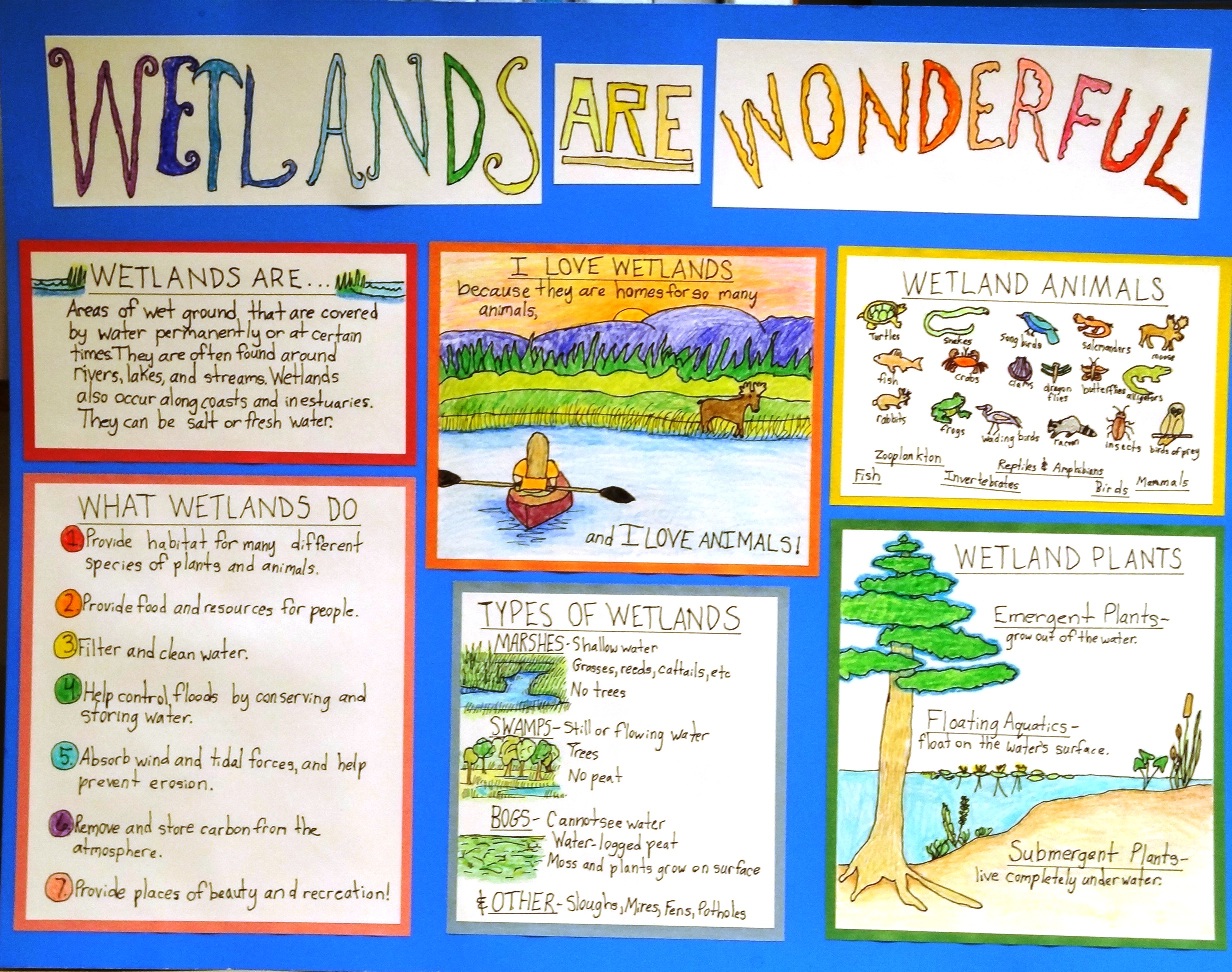 WETLANDS ARE WONDERFUL
WETLANDS ARE...
Areas of wet ground, that are covered
by water permanently or at certain
times. They are often found around
rivers, lakes, and streams. Wetlands
also occur along coasts and in estuaries.
They can be salt or fresh water.
WHAT WETLANDS DO
1. Provide habitat for many different
species of plants and animals.
2. Provide food and resources for people.
3. Filter and clean water.
4. Help control floods by conserving and
storing water.
5. Absorb wind and tidal forces, and help
prevent erosion.
6. Remove and store carbon from the
atmosphere.
7. Provide places of beauty and recreation!
I LOVE WETLANDS
because they are homes for so many
animals,
and I LOVE ANIMALS!
TYPES OF WETLANDS
MARSHES- Shallow water
Grasses, reeds, cattails, etc
No trees
SWAMPS- Still or flowing water
Trees
No peat
BOGS- Cannot see water
Water-logged peat
Moss and plants grow on surface
& OTHER- Sloughs, Mires, Fens, Potholes
WETLAND ANIMALS
Turtles snakes song birds salemanders moose
fish crabs clams dragon flies butterflies alligators
rabbits frogs wading birds racoon insects birds of prey
Zooplankton Reptiles & Amphibians
Fish Invertebrates Birds Mammals
WETLAND PLANTS
Emergent Plants-
grow out of the water.
Floating Aquatics-
float on the water's surface.
Submergent Plants-
live completely under water.